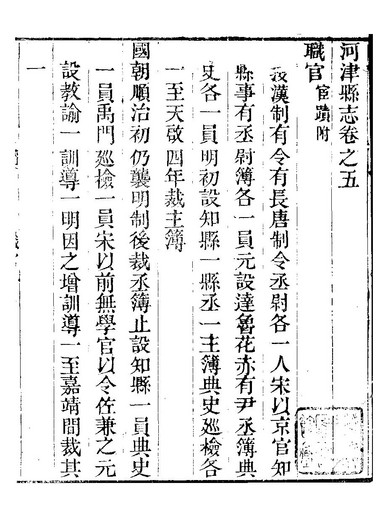 河津縣志卷之五
職官 宦蹟附
我漢制有令有長唐制令丞尉各一人宋以京官知
縣事有丞尉簿各一員元設達魯花赤有尹丞簿典
史各一員明初設知縣一縣丞一主簿典史巡檢各
一至天啟四年裁主簿
國朝順治初仍襲明制後裁丞簿止設知縣一員典史
一員禹門巡檢一員宋以前無學官以令佐兼之元
設教諭一訓導一明因之增訓導一至嘉靖間裁其
一